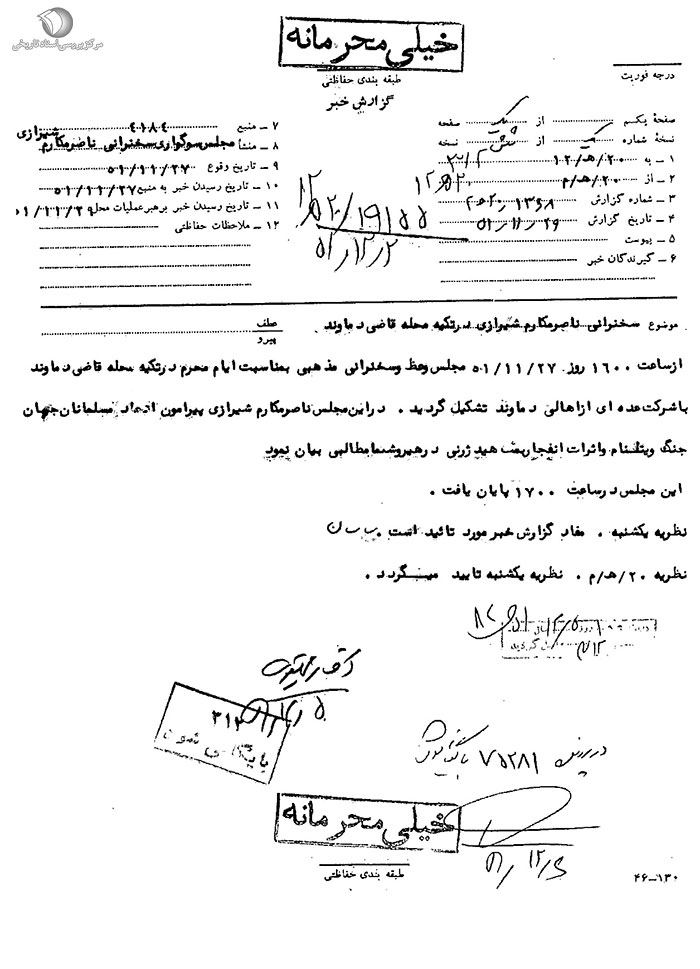 مرکز بررسی اسناد تاریخی
خیلی محرمانه
طبقه بندی حفاظتی
گزارش خبر
درجه فوریت
صفحهٔ یکم از یک صفحه
نسخهٔ شماره یک از شش نسخه
۱ ـ به ۱۲/ه‍/۲۰ ۳۱۲
۲ ـ از ۲۰/ه‍/م
۳ ـ شماره گزارش
۴ ـ تاریخ گزارش ۵۱/۱۱/۲۹
۵ ـ پیوست
۶ ـ گیرندگان خبر
۷ ـ منبع ۴۱۸۴
۸ ـ منشأ مجلس سوگواری سخنرانی ناصر مکارم شیرازی
۹ ـ تاریخ وقوع ۵۱/۱۱/۲۷
۱۰ ـ تاریخ رسیدن خبر به منبع ۵۱/۱۱/۲۷
۱۱ ـ تاریخ رسیدن خبر برهبر عملیات محل ۵۱/۱۱/۲۹
۱۲ ـ ملاحظات حفاظتی
موضوع سخنرانی ناصر مکارم شیرازی در تکیه محله قاضی دماوند
عطف
پیرو
از ساعت ۱۶۰۰ روز ۵۱/۱۱/۲۷ مجلس وعظ و سخنرانی مذهبی بمناسبت ایام محرم در تکیه محله قاضی دماوند
با شرکت عده ای از اهالی دماوند تشکیل گردید . در این مجلس ناصر مکارم شیرازی پیرامون اتحاد مسلمانان جهان
جنگ ویتنام و اثرات انفجار بمب هیدرژنی در هیروشیما مطالبی بیان نمود
این مجلس در ساعت ۱۷۰۰ پایان یافت .
نظریه یکشنبه . مفاد گزارش خبر مورد تائید است .
نظریه ۲۰/ه‍/م . نظریه یکشنبه تایید میگردد .
۳۱۲
بایگانی شود
در پرونده ۷۵۲۸۱ بایگانی شود
خیلی محرمانه
طبقه بندی حفاظتی
۴۶-۱۳۰